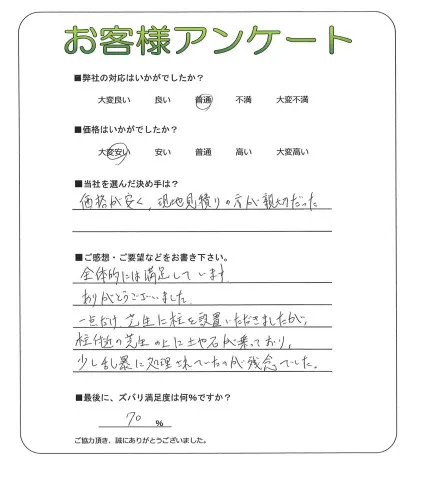 お客様アンケート
■弊社の対応はいかがでしたか？
大変良い 良い 普通 不満 大変不満
■価格はいかがでしたか？
大変安い 安い 普通 高い 大変高い
■当社を選んだ決め手は？
価格が安く、現地見積りの方が親切だった
■ご感想・ご要望などをお書き下さい。
全体的には満足しています。
ありがとうございました。
一点だけ、芝生に柱を設置いただきましたが、
柱付近の芝生の上に土や石が乗っており、
少し乱暴に処理されていたのが残念でした。
■最後に、ズバリ満足度は何%ですか？
70 %
ご協力頂き、誠にありがとうございました。